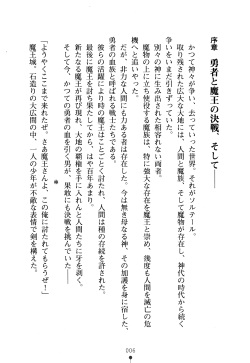 序章　勇者と魔王の決戦、そして——
かつて神々が争い、去っていった世界。それがソルテール。
取り残された広大な大地には、人間と魔族、そして魔物が存在し、神代の時代から続く
争いをいまだ引きずっていた。
別々の神に生み出された、決して相容れない両者。
魔物の上に立ち使役する魔族は、特に強大な存在を魔王と崇め、幾度も人間を滅亡の危
機へと追いやった。
だが、非力な人間にも力ある者は存在した。今は無き母なる神、その加護を身に宿し、
勇者の血族と呼ばれる戦士たちである。
彼らの活躍により時の魔王はことごとく討たれ、人間は種の存続を保ってきた。
最後に魔王を討ち果たしてから、はや百年あまり。
新たなる魔王が再び現れ、大地の覇権を手に入れんと人間たちに牙を剥く。
そして今、かつての勇者の血を引く男が、果敢にも決戦を挑んでいた——
「ようやくここまで来れたぜ。さあ魔王さんよ、この俺に討たれてもらうぜ！」
魔王城。石造りの大広間の中で、一人の少年が不敵な表情で剣を構えた。
006